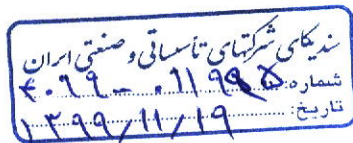 سندیکای شرکتهای تأسیساتی و صنعتی ایران
شماره:
تاریخ: ۱۳۹۹/۱۱/۱۹